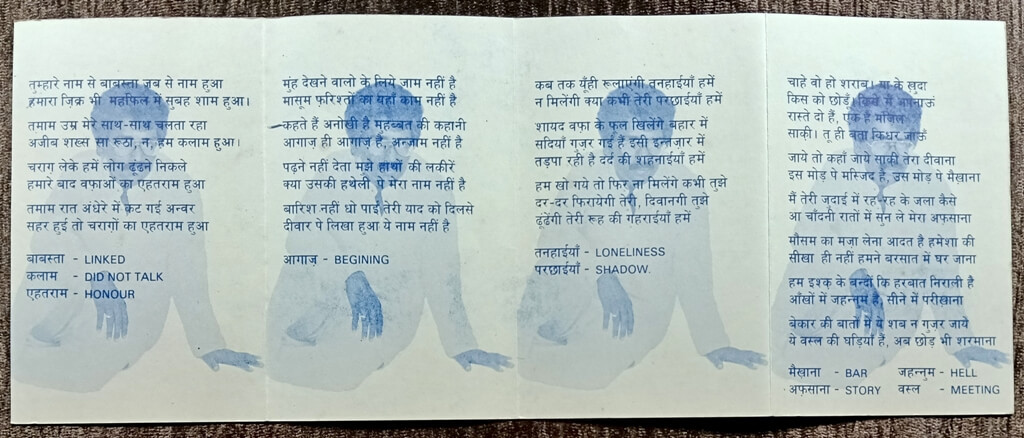 तुम्हारे नाम से बाबस्ता जब से नाम हुआ
हमारा ज़िक्र भी महफिल में सुबह शाम हुआ।
तमाम उम्र मेरे साथ-साथ चलता रहा
अजीब शख्स सा रूठा, न, हम कलाम हुआ।
चराग़ लेके हमें लोग ढूंढने निकले
हमारे बाद वफाओं का एहतराम हुआ
तमाम रात अंधेरे में कट गई अन्वर
सहर हुई तो चरागों का एहतराम हुआ
बाबस्ता - LINKED
कलाम - DID NOT TALK
एहतराम - HONOUR
मुंह देखने वालो के लिये जाम नहीं है
मासूम फ़रिश्तों का यहां काम नहीं है
कहते हैं अनोखी है महब्बत की कहानी
आगाज़ ही आगाज़ है, अन्जाम नहीं है
पढ़ने नहीं देता मुझे हाथों की लकीरें
क्या उसकी हथेली पे मेरा नाम नहीं है
बारिश नहीं धो पाई तेरी याद को दिलसे
दीवार पे लिखा हुआ ये नाम नहीं है
आगाज़ - BEGINING
कब तक यूँही रूलाएंगी तनहाईयाँ हमें
न मिलेंगी क्या कभी तेरी परछाईयाँ हमें
शायद वफ़ा के फल खिलेंगे बहार में
सदियाँ गुज़र गई हैं इसी इन्तज़ार में
तड़पा रही है दर्द की शहनाईयाँ हमें
हम खो गये तो फिर ना मिलेंगे कभी तुझे
दर-दर फिरायेगी तेरी, दिवानगी तुझे
ढूंढेगी तेरी रूह की गहराईयाँ हमें
तनहाईयाँ - LONELINESS
परछाईयाँ - SHADOW.
चाहे वो हो शराब। या के खुदा
किस को छोडूं। किसे में अपनाऊं
रास्ते दो हैं, एक है मंज़िल
साक़ी। तू ही बता किधर जाऊं
जाये तो कहाँ जाये साक़ी तेरा दीवाना
इस मोड़ पे मस्जिद है, उस मोड़ पे मैख़ाना
मैं तेरी जुदाई में रह-रह के जला कैसे
आ चाँदनी रातों में सुन ले मेरा अफ़साना
मौसम का मज़ा लेना आदत है हमेशा की
सीखा ही नहीं हमने बरसात में घर जाना
हम इश्क़ के बन्दों कि हरबात निराली है
आँखों में जहन्नुम है, सीने में परीखाना
बेकार की बातों में ये शब न गुज़र जाये
ये वस्ल की घड़ियाँ हैं, अब छोड़ भी शरमाना
मैख़ाना - BAR जहन्नुम - HELL
अफ़साना - STORY वस्ल - MEETING